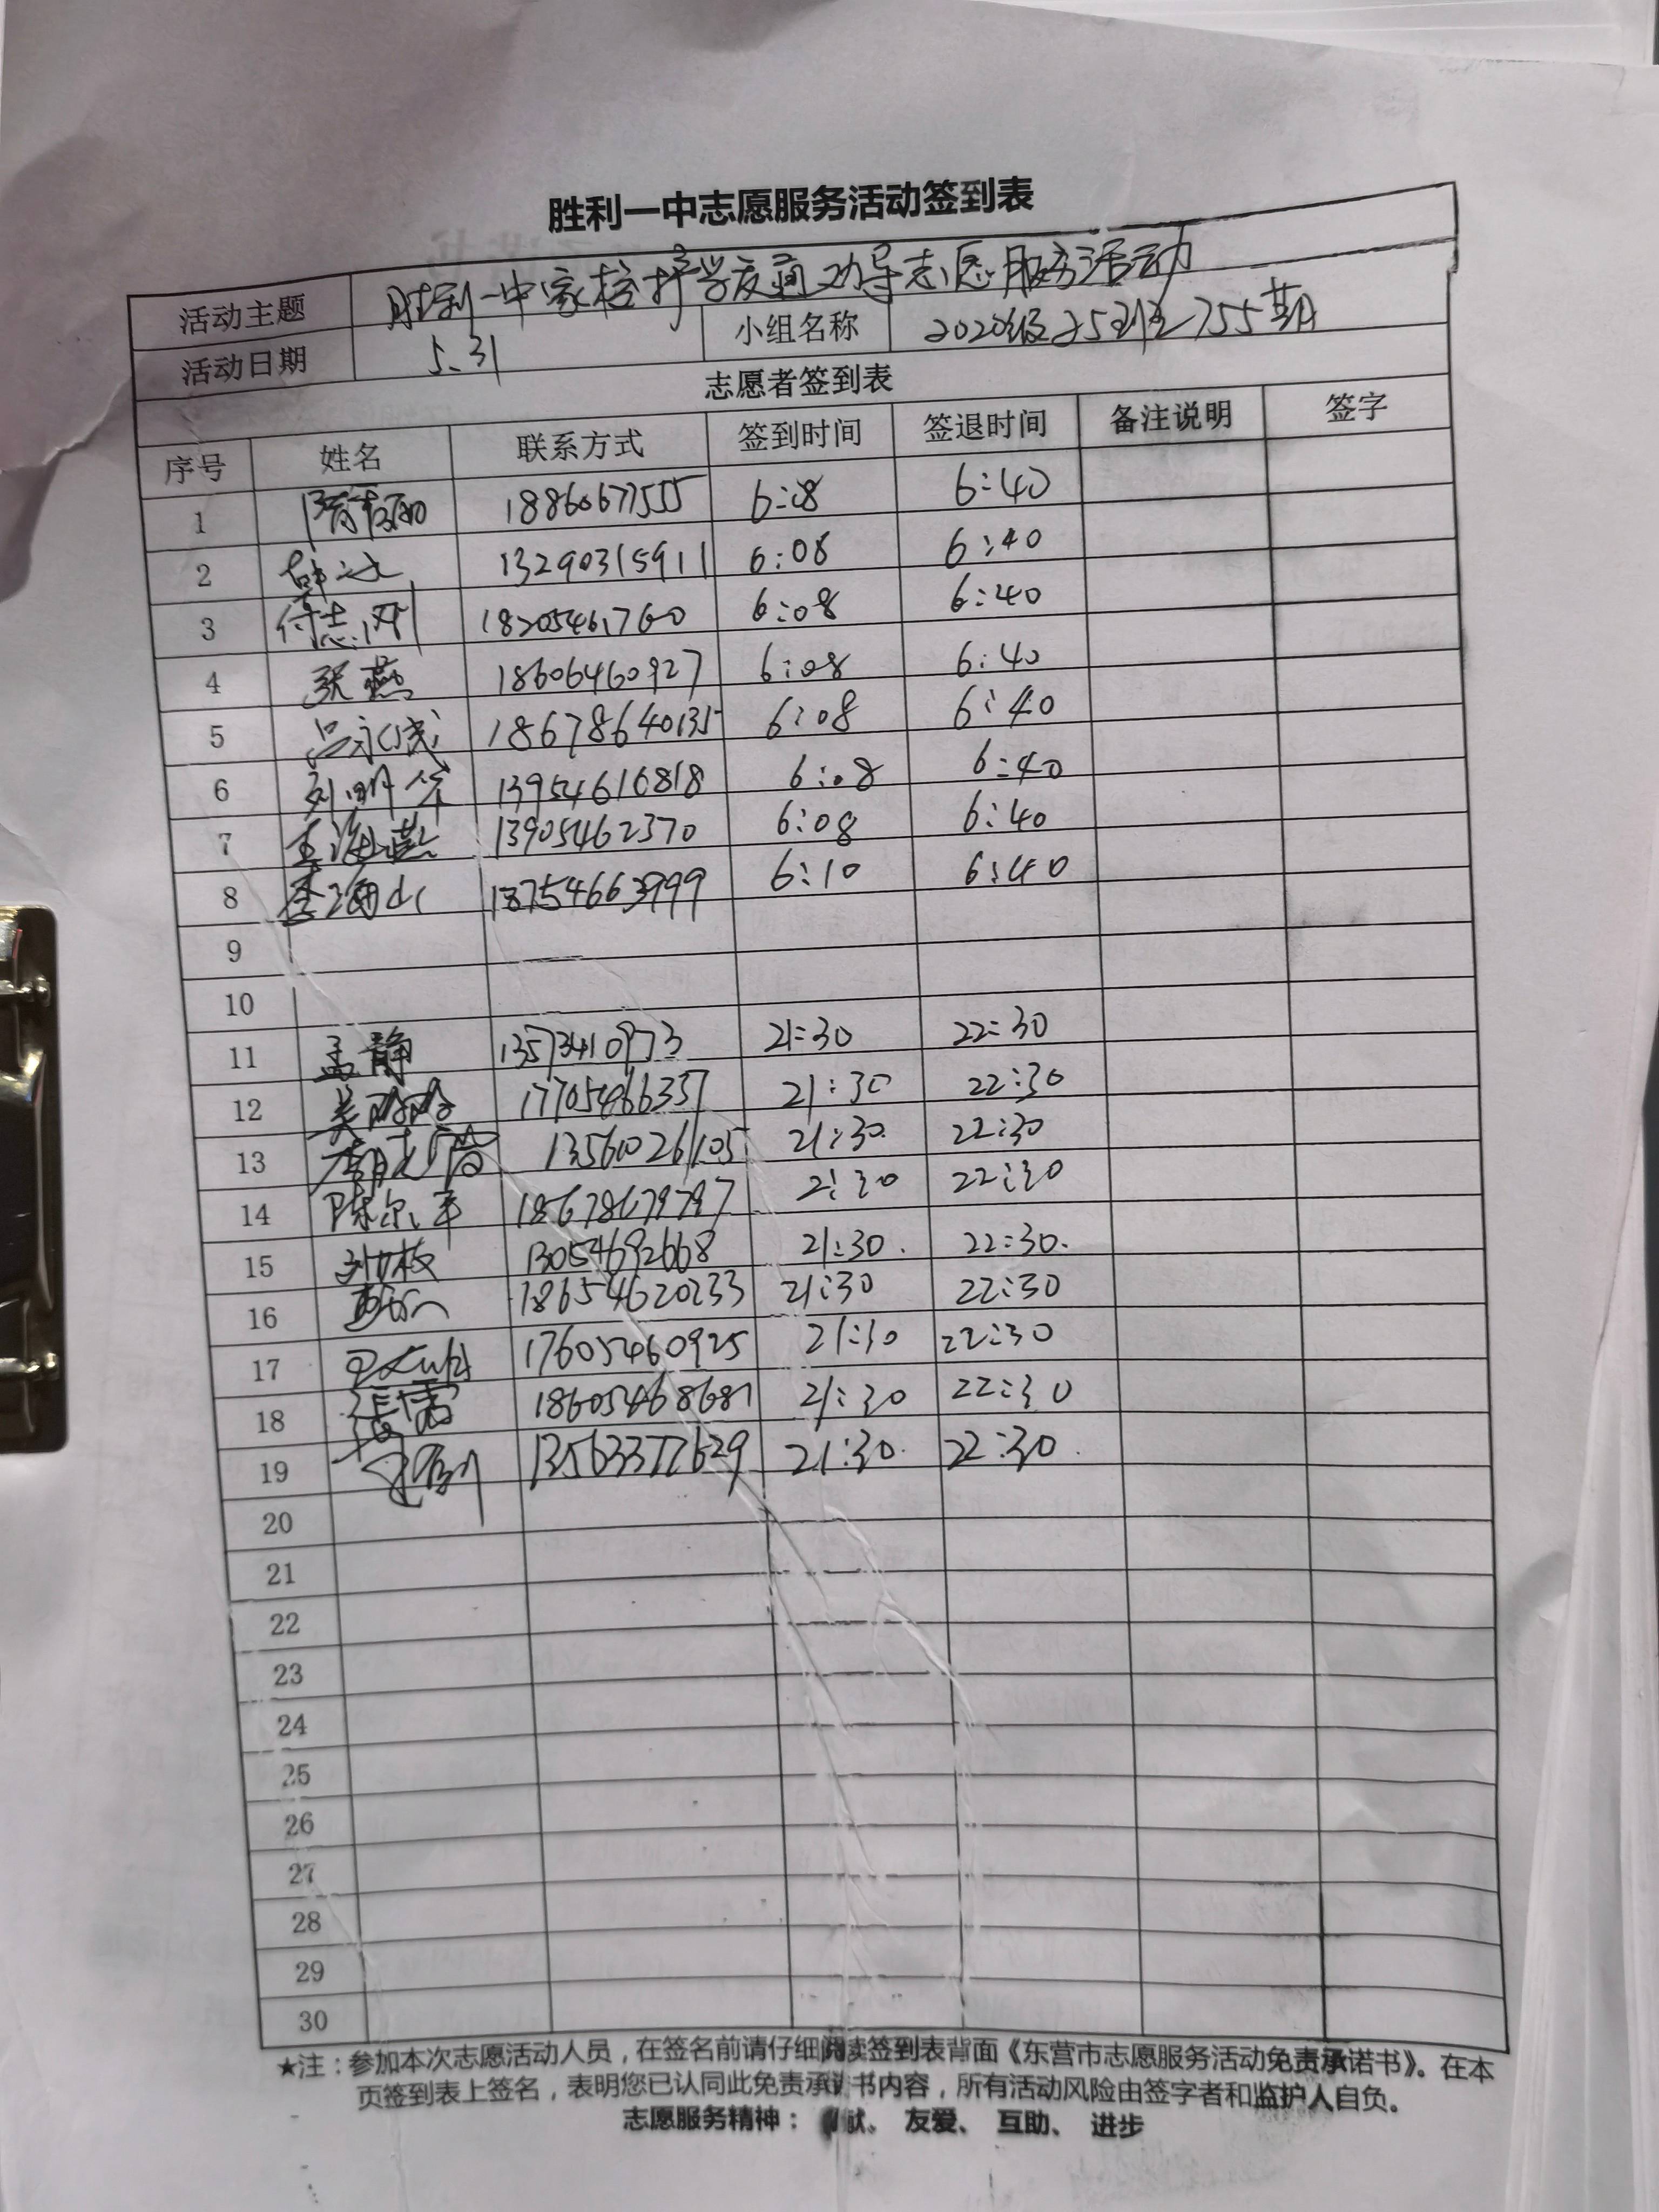 胜利一中志愿服务活动签到表
活动主题 胜利一中家校护学交通劝导志愿服务活动
活动日期 5.31 小组名称 2020级25班755期
志愿者签到表
序号 姓名 联系方式 签到时间 签退时间 备注说明 签字
1 18860677555 6:08 6:40
2 13290315911 6:08 6:40
3 18205461760 6:08 6:40
4 张燕 18606460927 6:08 6:40
5 吕永成 18678640135 6:08 6:40
6 刘明华 13954616818 6:08 6:40
7 王海燕 13905462370 6:08 6:40
8 李海山 18754663999 6:10 6:40
9
10
11 孟静 13573410973 21:30 22:30
12 吴玲玲 17705466337 21:30 22:30
13 13560261105 21:30 22:30
14 18678679797 21:30 22:30
15 13054692668 21:30. 22:30.
16 18654620233 21:30 22:30
17 17605460925 21:30 22:30
18 张雷 18605468681 21:30 22:30
19 13563377629 21:30. 22:30.
20
21
22
23
24
25
26
27
28
29
30
★注：参加本次志愿活动人员，在签名前请仔细阅读签到表背面《东营市志愿服务活动免责承诺书》。在本
页签到表上签名，表明您已认同此免责承诺书内容，所有活动风险由签字者和监护人自负。
志愿服务精神： 献、 友爱、 互助、 进步